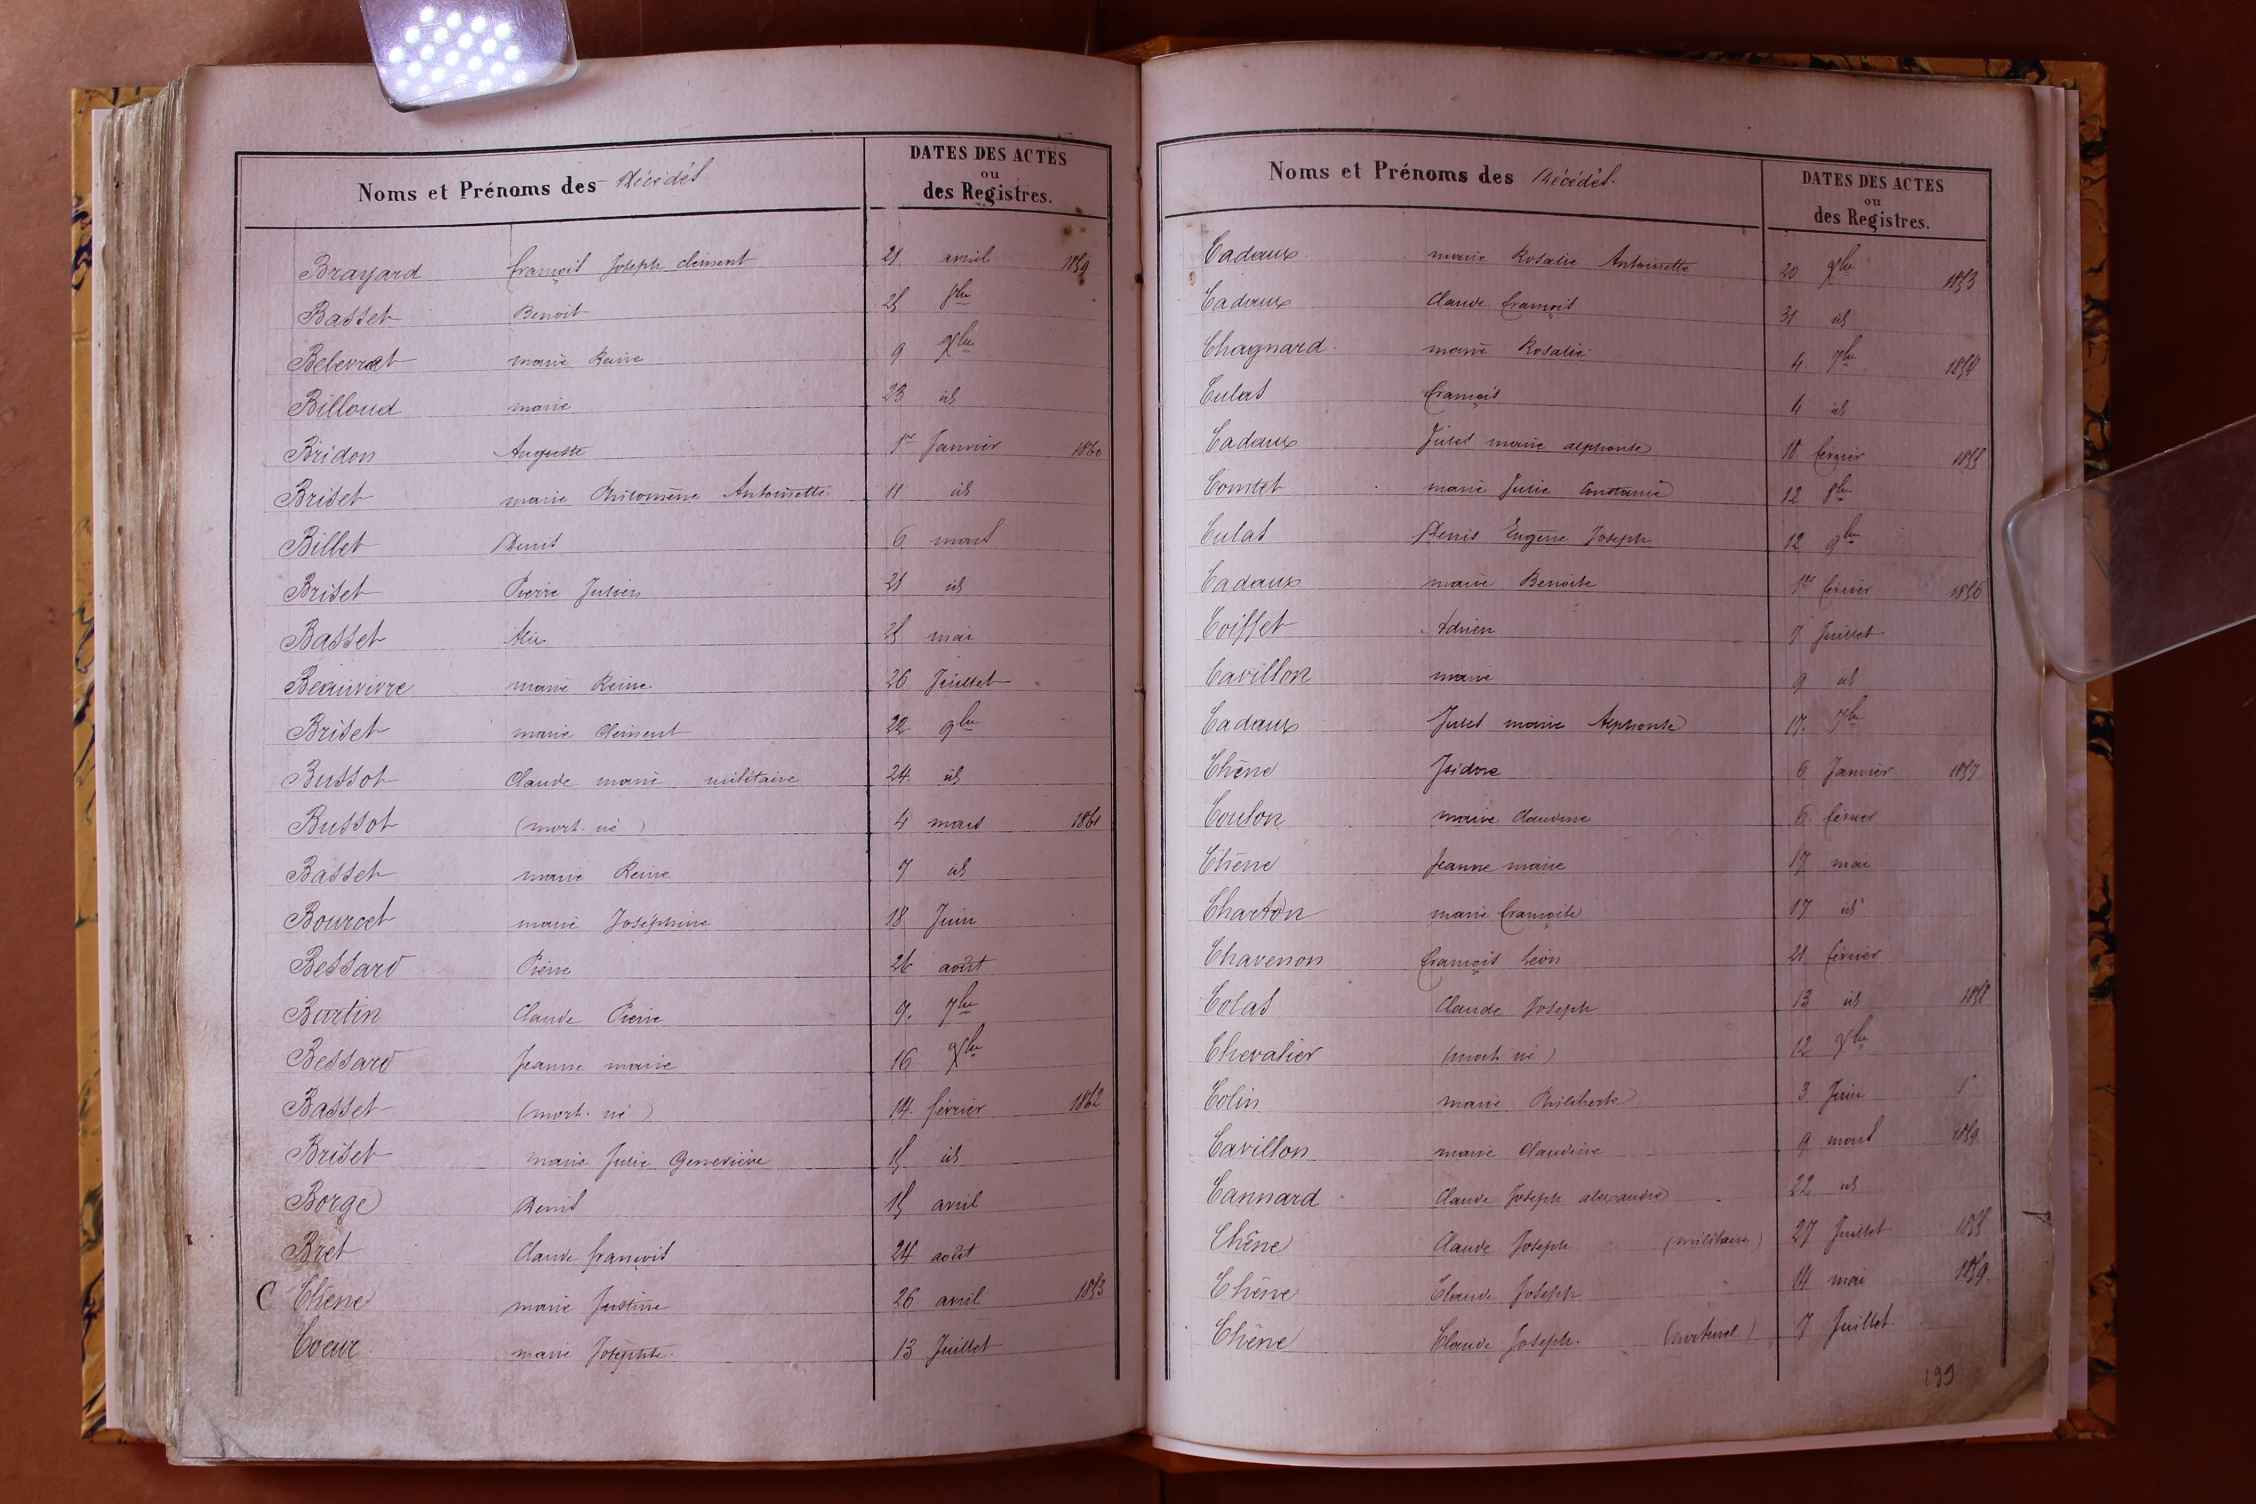 Noms et Prénoms des Décédés
DATES DES ACTES
ou
des Registres.
Brayard François Joseph Clément 21 avril 1859
Basset Benoit 25 8bre
Belevrat marie Reine 9 Xbre
Billoud marie 23 id
Bridon Auguste 1er Janvier 1860
Briset marie Philomène Antoinette 11 id
Billet Denis 6 mars
Briset Pierre Julien 21 id
Basset 25 mai
Beauvivre marie Reine 26 Juillet
Briset marie Clément 22 9bre
Bussot Claude marie militaire 24 id
Bussot (mort né) 4 mars 1861
Basset marie Reine 7 id
Bourcet marie Joséphine 18 Juin
Bessard Pierre 26 août
Bartin Claude Pierre 9 7bre
Bessard Jeanne marie 16 Xbre
Basset (mort né) 14 février 1862
Briset marie Julie Geneviève 15 id
Borge Denis 15 avril
Bret Claude françois 24 août
C Chêne marie Justine 26 avril 1853
Coeur marie Josephte 13 Juillet
Noms et Prénoms des Décédés.
DATES DES ACTES
ou
des Registres.
Cadaux marie Rosalie Antoinette 20 Xbre 1853
Cadaux Claude François 31 id
Chagnard marie Rosalie 4 7bre 1854
Culas François 4 id
Cadaux Jules marie alphonse 18 février 1855
Comtet marie Julie Constance 12 8bre
Culas Denis Eugène Joseph 12 9bre
Cadaux marie Benoite 1er février 1856
Coisset Adrien 7 Juillet
Cavillon marie 9 id
Cadaux Jules marie Alphonse 17 7bre
Chêne Isidore 6 Janvier 1857
Coulon marie Claudine 6 février
Chêne Jeanne marie 17 mai
Charton marie Françoise 17 id
Chavenon François Léon 21 février
Colas Claude Joseph 13 id 1858
Chevalier (mort né) 12 Xbre
Colin marie Philiberte 3 Juin
Cavillon marie Claudine 9 mars 1859
Cannard Claude Joseph alexandre 22 id
Chêne Claude Joseph (militaire) 27 Juillet 1855
Chêne Claude Joseph 14 mai 1859.
Chêne Claude Joseph. (naturel) 7 Juillet.
199